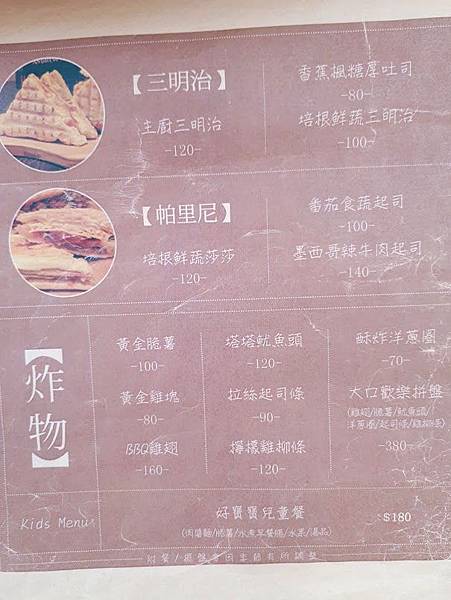 【三明治】
香蕉楓糖厚吐司
-80-
主廚三明治
-120-
培根鮮蔬三明治
-100-
【帕里尼】
番茄食蔬起司
-100-
培根鮮蔬莎莎
-120-
墨西哥辣牛肉起司
-140-
【炸物】
黃金脆薯
-100-
塔塔魷魚頭
-120-
酥炸洋蔥圈
-70-
黃金雞塊
-80-
拉絲起司條
-90-
大口歡樂拼盤
(雞翅/脆薯/魷魚頭/
洋蔥圈/起司條/雞柳條)
-380-
BBQ雞翅
-160-
檸檬雞柳條
-120-
Kids Menu
好寶寶兒童餐
(肉醬麵/脆薯/水煮早餐腸/水果/湯品)
$180
附餐/擺盤會因季節有所調整